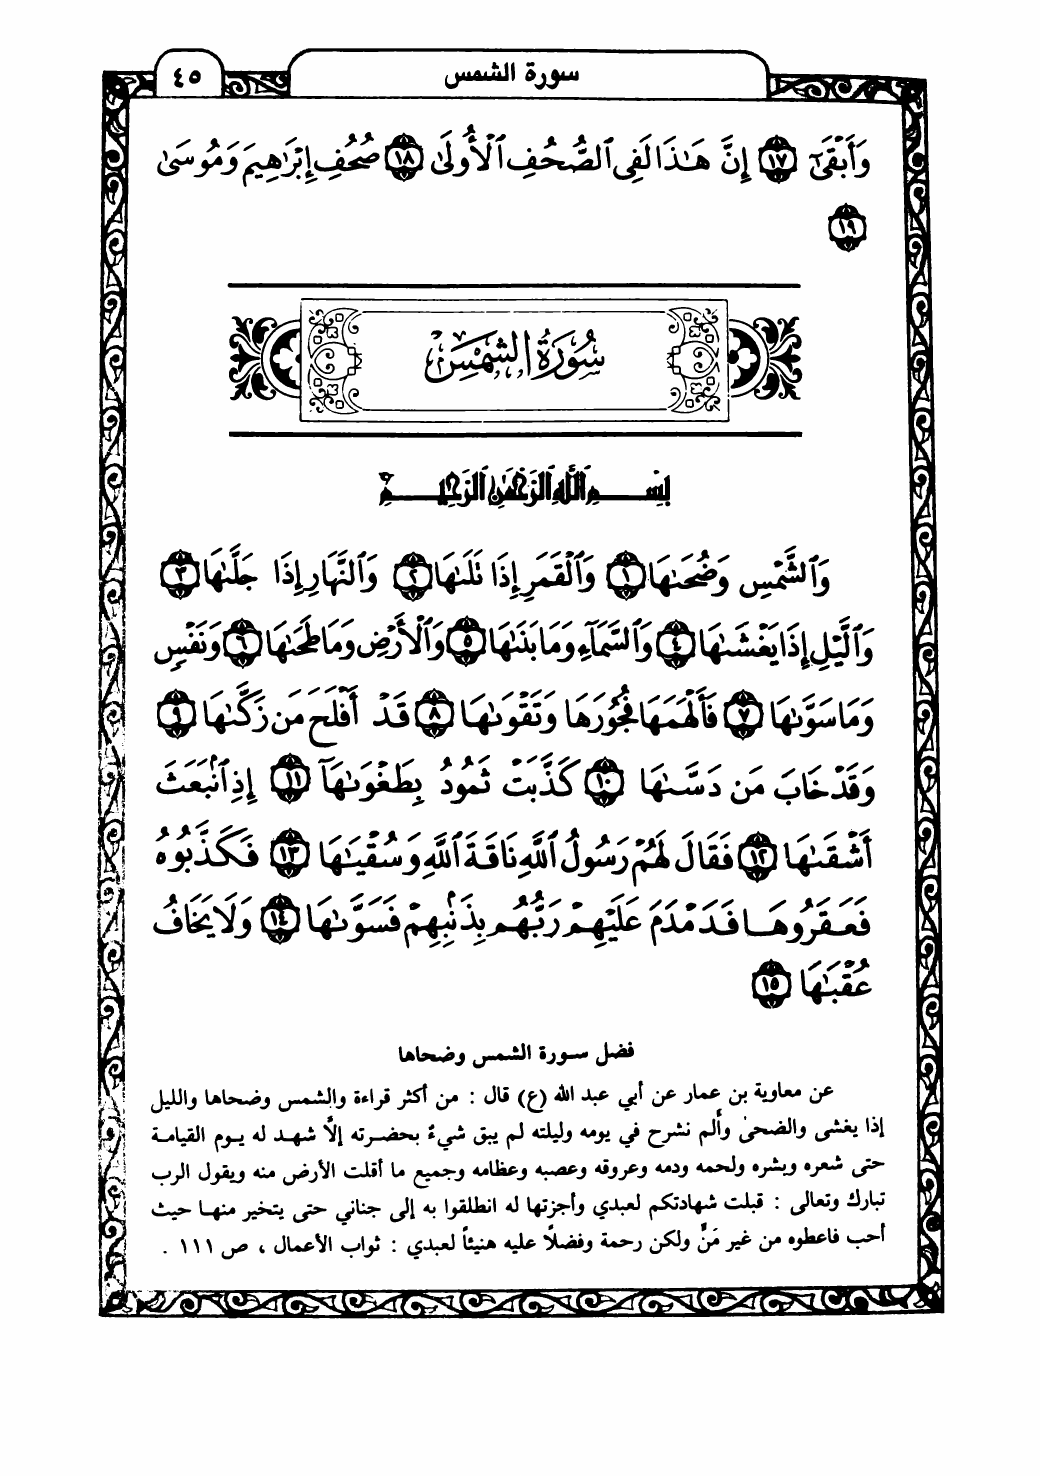 ٤٥
سورة الشمس
وَأَبْقَىٰٓ ١٧ إِنَّ هَـٰذَا لَفِى ٱلصُّحُفِ ٱلْأُولَىٰ ١٨ صُحُفِ إِبْرَٰهِيمَ وَمُوسَىٰ
١٩
سُورَةُ الشَّمْسِ
بِسْمِ ٱللَّهِ ٱلرَّحْمَٰنِ ٱلرَّحِيمِ
وَٱلشَّمْسِ وَضُحَىٰهَا ١ وَٱلْقَمَرِ إِذَا تَلَىٰهَا ٢ وَٱلنَّهَارِ إِذَا جَلَّىٰهَا ٣
وَٱلَّيْلِ إِذَا يَغْشَىٰهَا ٤ وَٱلسَّمَآءِ وَمَا بَنَىٰهَا ٥ وَٱلْأَرْضِ وَمَا طَحَىٰهَا ٦ وَنَفْسٍ
وَمَا سَوَّىٰهَا ٧ فَأَلْهَمَهَا فُجُورَهَا وَتَقْوَىٰهَا ٨ قَدْ أَفْلَحَ مَن زَكَّىٰهَا ٩
وَقَدْ خَابَ مَن دَسَّىٰهَا ١٠ كَذَّبَتْ ثَمُودُ بِطَغْوَىٰهَآ ١١ إِذِ ٱنۢبَعَثَ
أَشْقَىٰهَا ١٢ فَقَالَ لَهُمْ رَسُولُ ٱللَّهِ نَاقَةَ ٱللَّهِ وَسُقْيَـٰهَا ١٣ فَكَذَّبُوهُ
فَعَقَرُوهَا فَدَمْدَمَ عَلَيْهِمْ رَبُّهُم بِذَنۢبِهِمْ فَسَوَّىٰهَا ١٤ وَلَا يَخَافُ
عُقْبَـٰهَا ١٥
فضل سورة الشمس وضحاها
عن معاوية بن عمار عن أبي عبد الله (ع) قال : من أكثر قراءة والشمس وضحاها والليل
إذا يغشى والضحىٰ وألم نشرح في يومه وليلته لم يبق شيءٌ بحضرته إلاَّ شهد له يوم القيامة
حتى شعره وبشره ولحمه ودمه وعروقه وعصبه وعظامه وجميع ما أقلت الأرض منه ويقول الرب
تبارك وتعالى : قبلت شهادتكم لعبدي وأجزتها له انطلقوا به إلى جناني حتى يتخير منها حيث
أحب فاعطوه من غير مَنٍّ ولكن رحمة وفضلاً عليه هنيئاً لعبدي : ثواب الأعمال ، ص ١١١ .